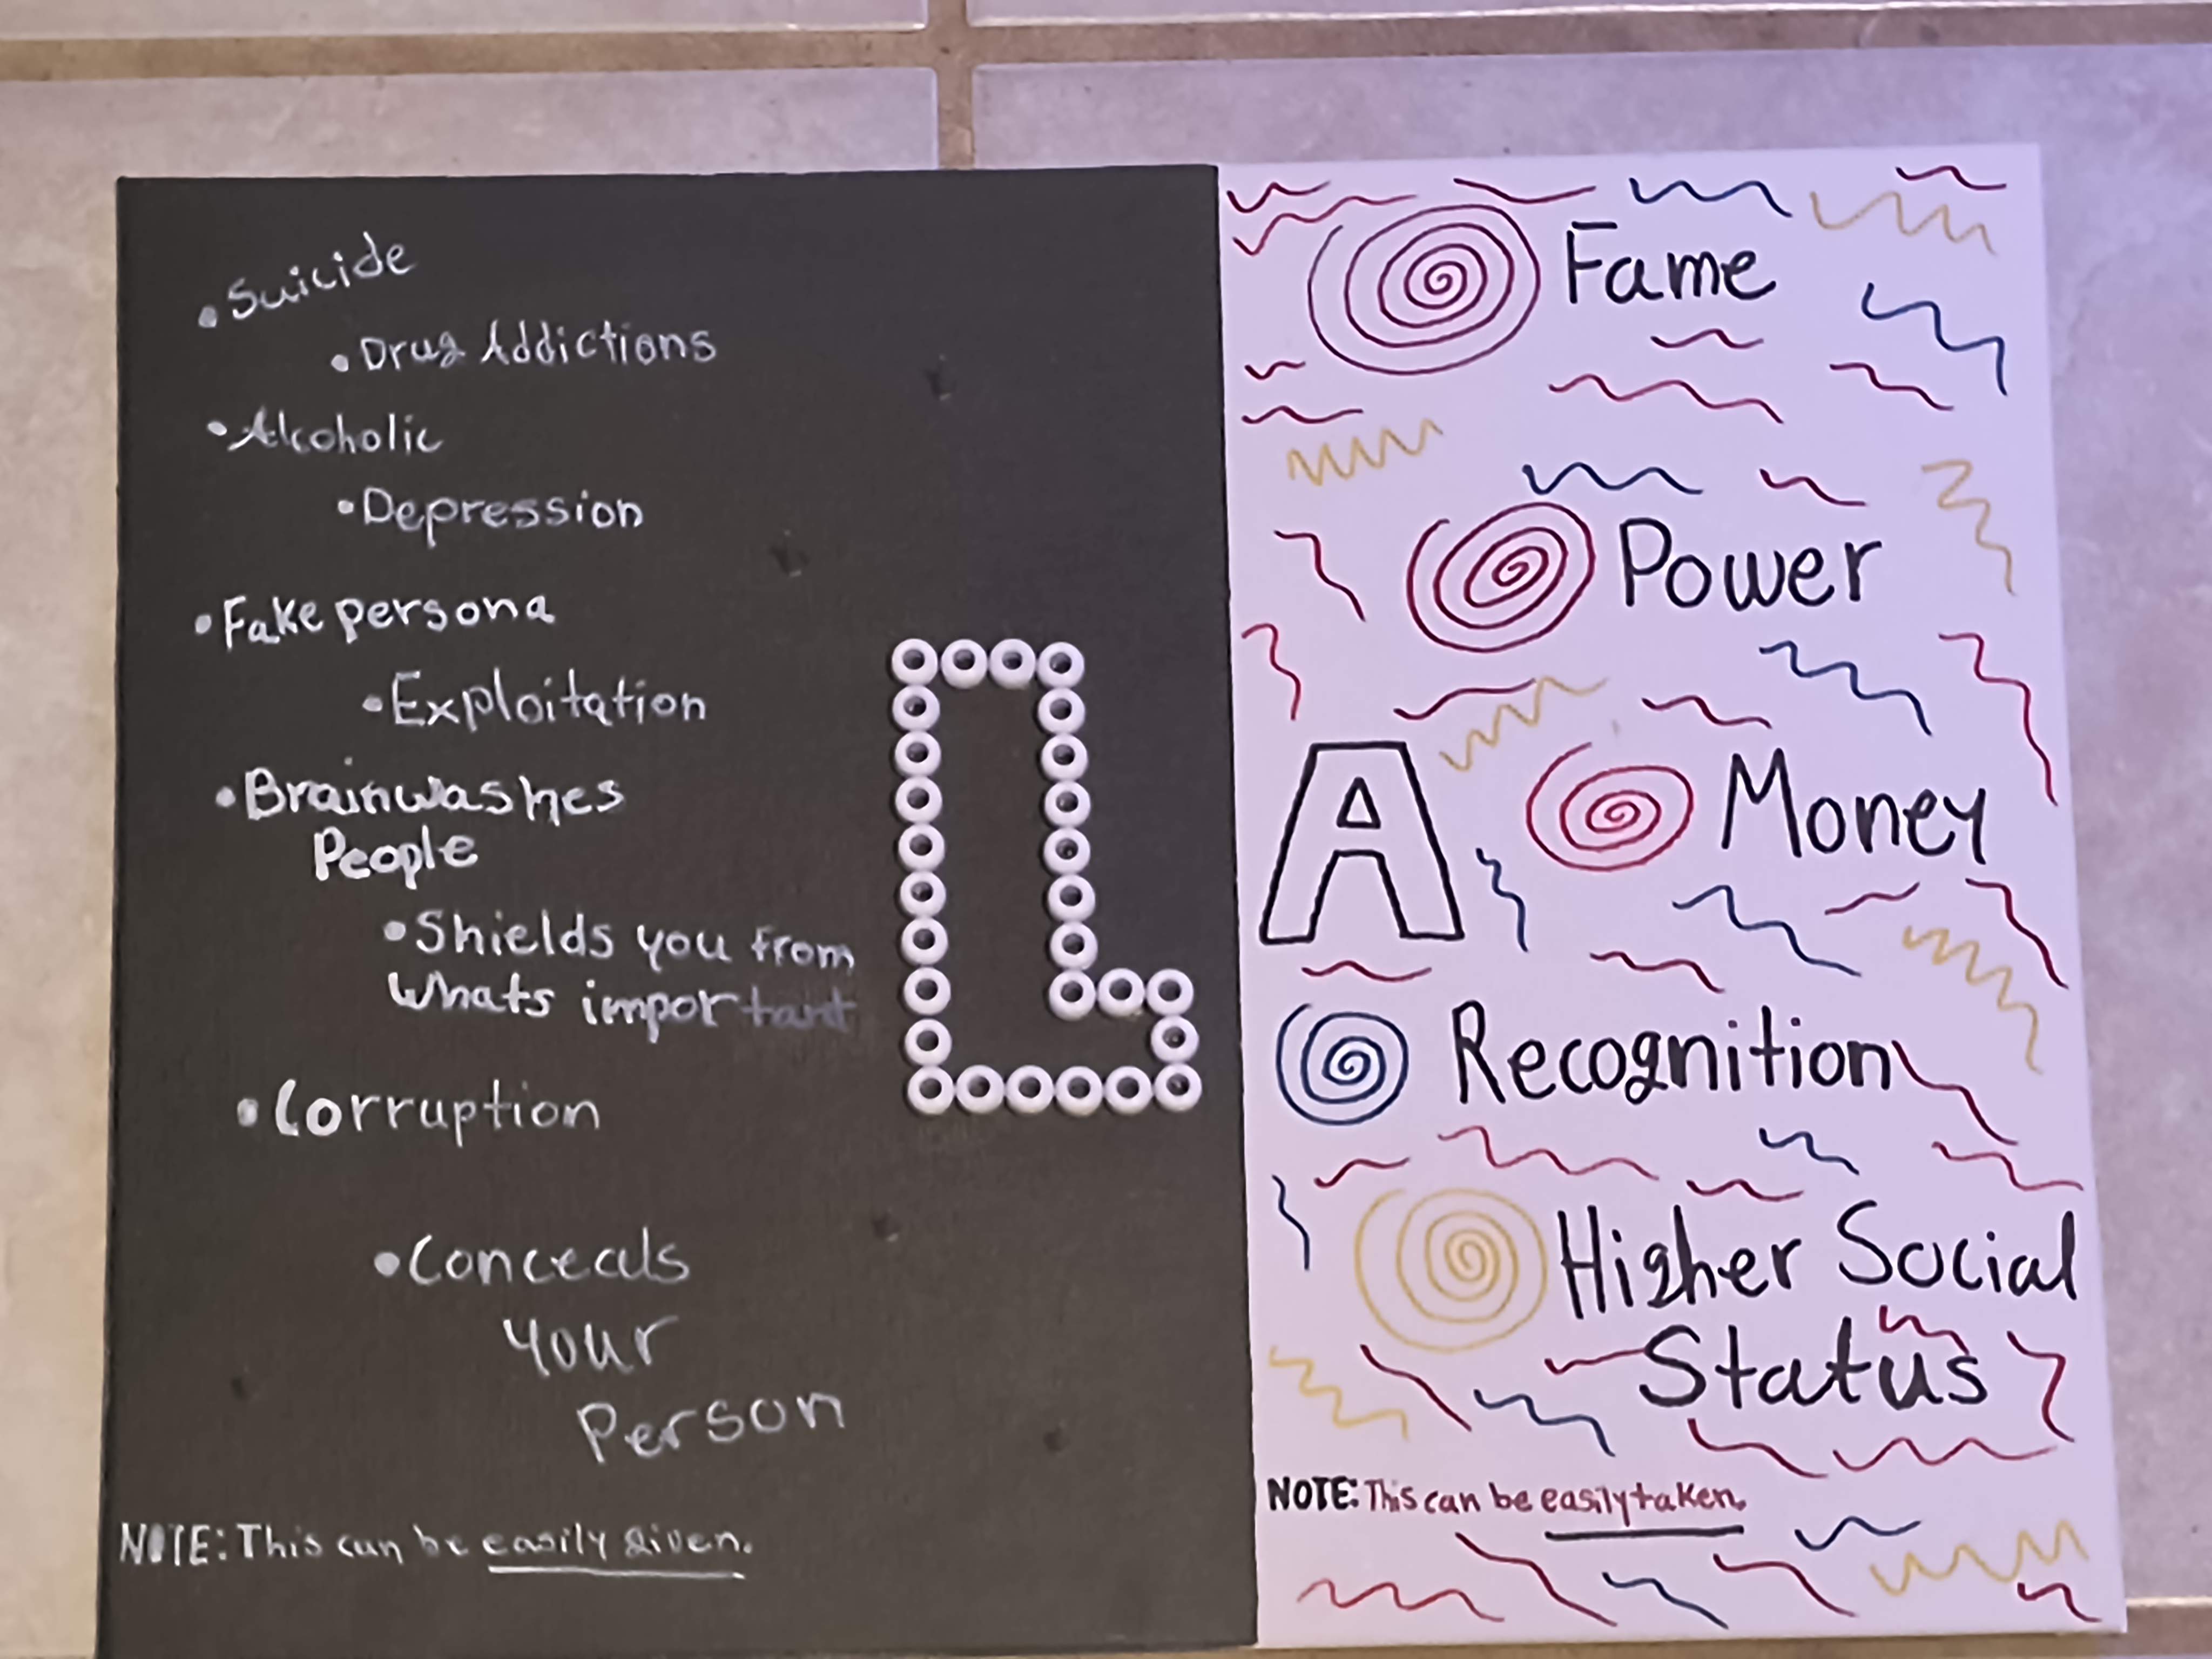 • Suicide
• Drug Addictions
• Alcoholic
• Depression
• Fake persona
• Exploitation
• Brainwashes
People
• Shields you from
Whats important
• Corruption
• Conceals
your
Person
NOTE: This can be easily given.
L
A
Fame
Power
Money
Recognition
Higher Social
Status
NOTE: This can be easily taken.